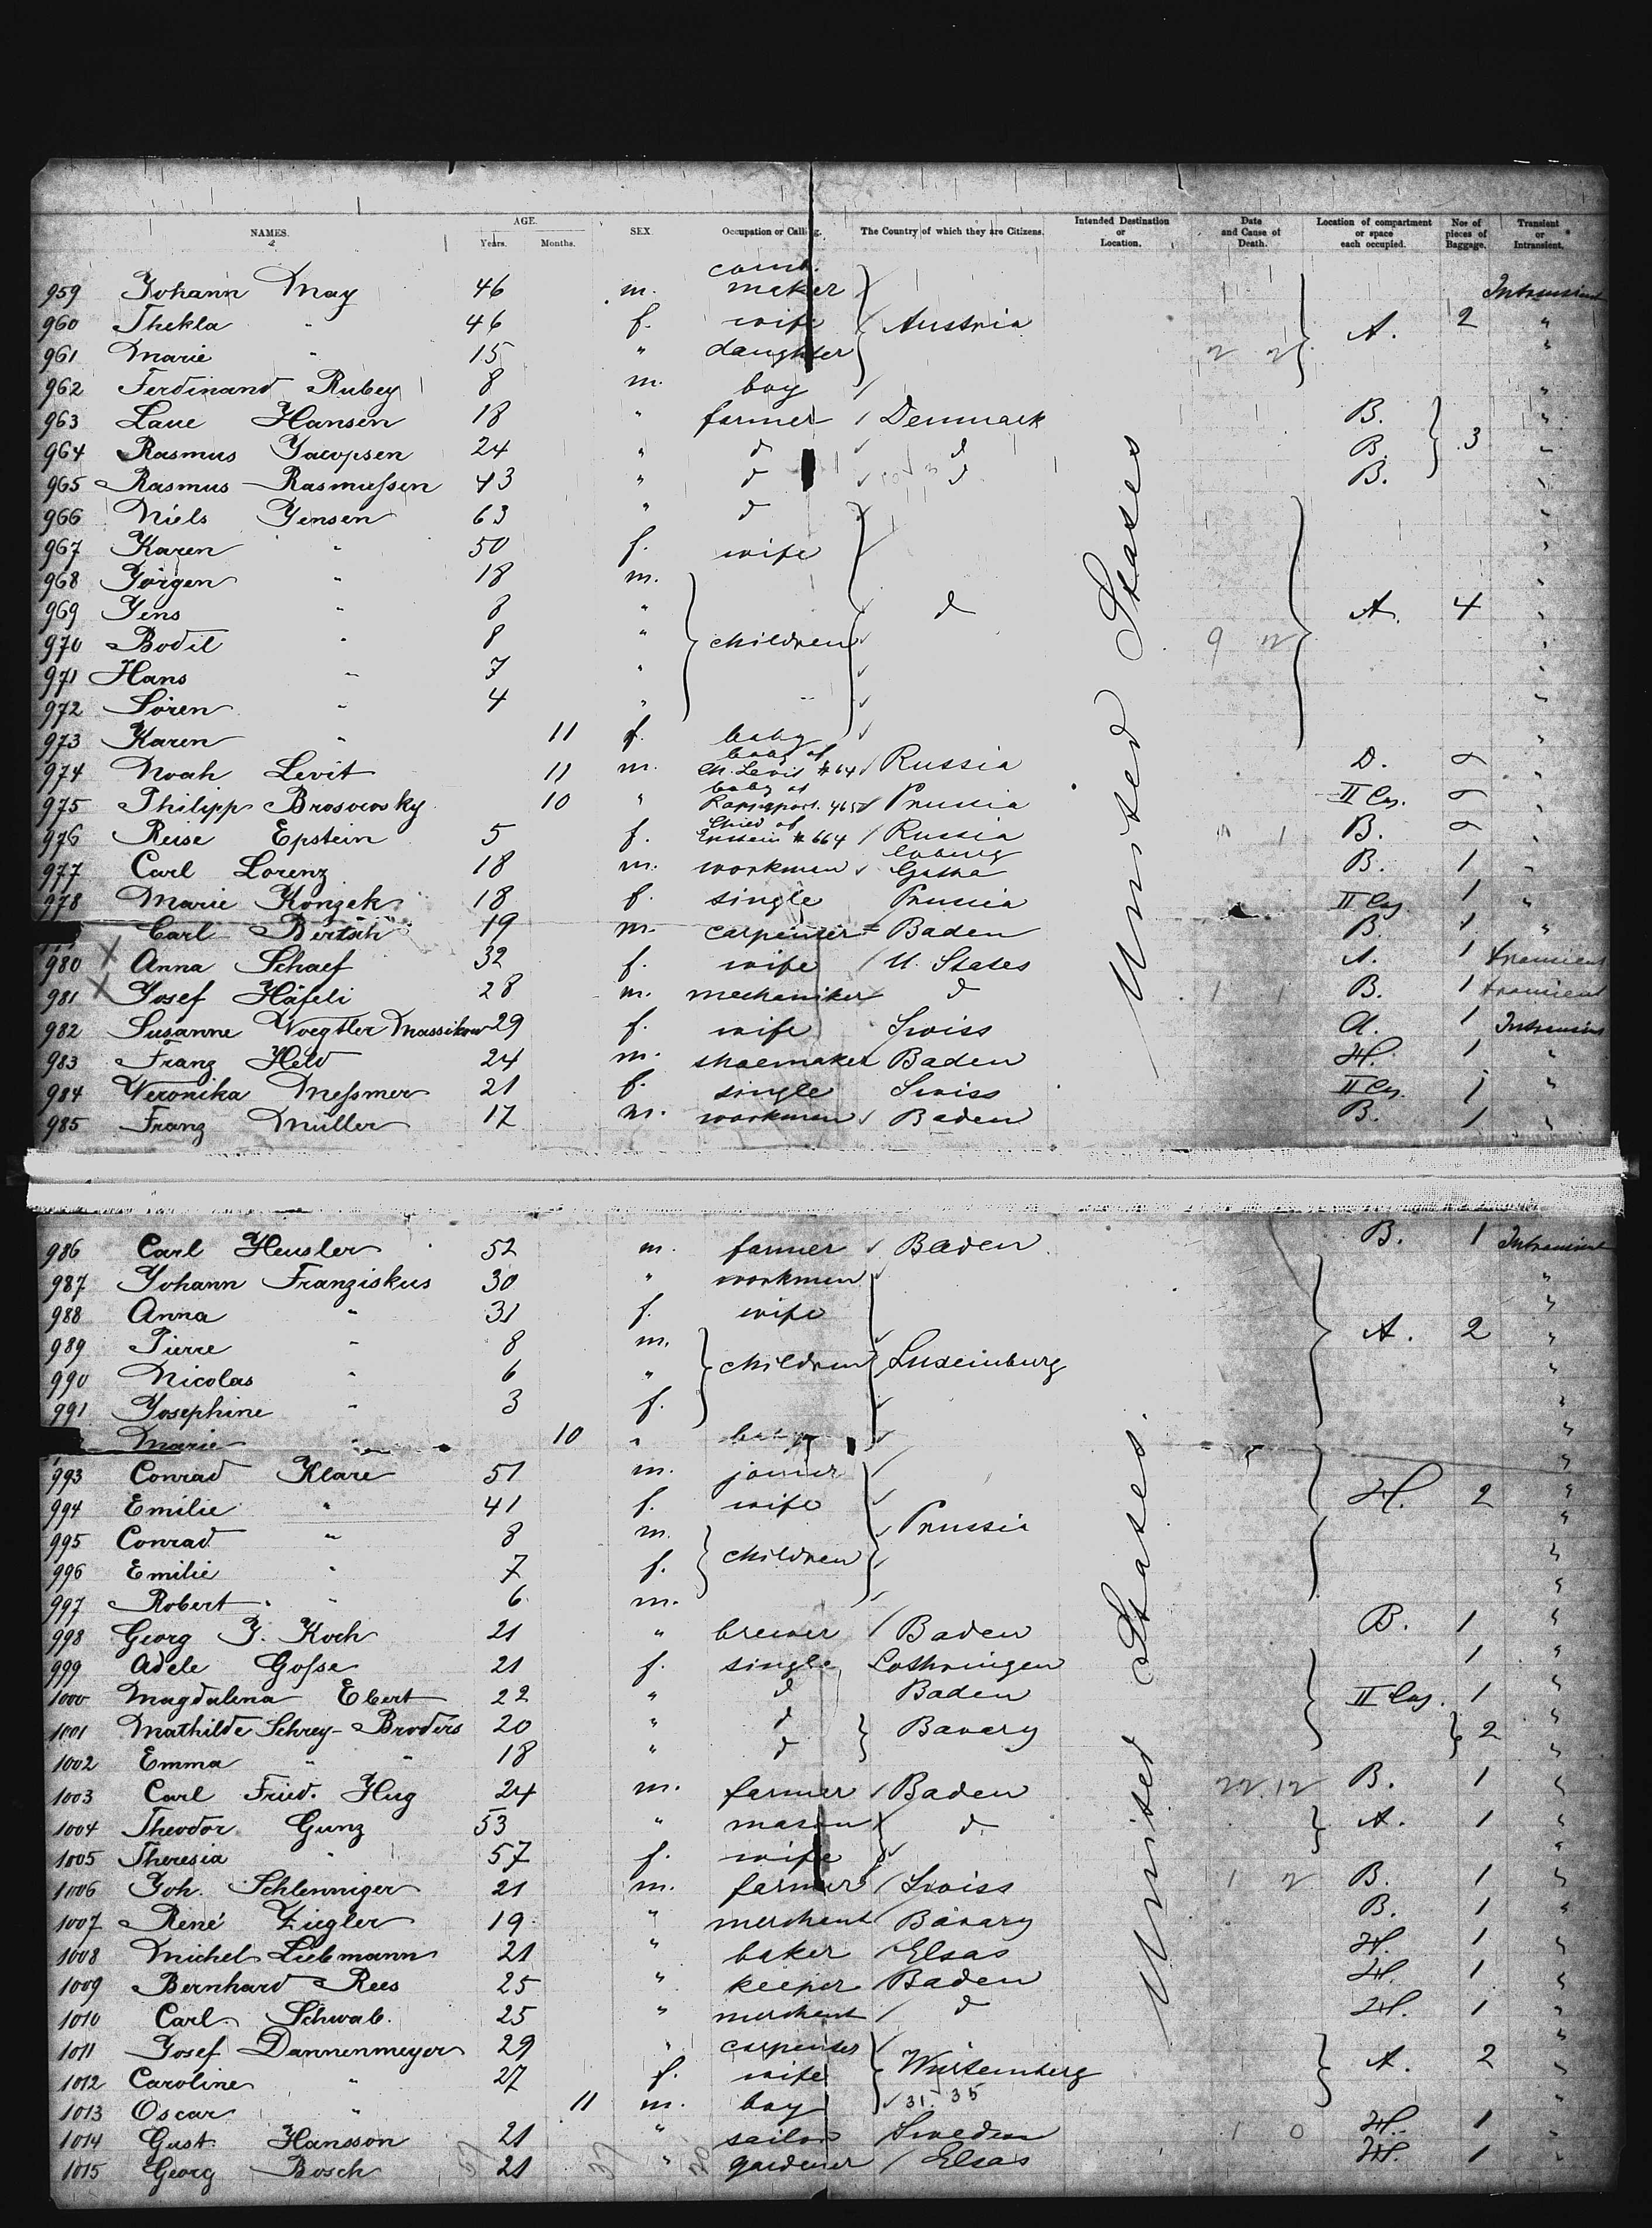 NAMES. AGE. Years. Months. SEX Occupation or Calling. The Country of which they are Citizens. Intended Destination or Location. Date and Cause of Death. Location of compartment or space each occupied. Nos of pieces of Baggage. Transient or Intransient.
959 Johann May 46 m. maker Intransient
960 Thekla " 46 f. wife Austria A. 2 "
961 Marie " 15 " daughter "
962 Ferdinand Rubey 8 m. boy "
963 Laue Hansen 18 " farmer Denmark B. "
964 Rasmus Jacopsen 24 " d d B. 3 "
965 Rasmus Rasmussen 43 " d d B. "
966 Niels Jensen 63 " d "
967 Karen " 50 f. wife "
968 Jörgen " 18 m. "
969 Jens " 8 " d A. 4 "
970 Bodil " 8 " children "
971 Hans " 7 " "
972 Sören " 4 " "
973 Karen " 11 f. baby "
974 Noah Levit 11 m. baby of M. Levit # 64 Russia D. "
975 Philipp Brosowsky 10 " baby of Rappaport. 465 Prussia II Caj. "
976 Reise Epstein 5 f. Child of Epstein # 664 Russia B. "
977 Carl Lorenz 18 m. workmen Coburg Gotha B. 1 "
978 Marie Konzek 18 f. single Prussia II Caj. 1 "
Carl Bertsch 19 m. carpenter Baden B. 1 "
980 Anna Schaef 32 f. wife U. States A. 1 transient
981 Josef Häfeli 28 m. mechaniker d B. 1 transient
982 Susanne Voegtler Massikow 29 f. wife Swiss A. 1 Intransient
983 Franz Held 24 m. shoemaker Baden H. 1 "
984 Veronika Messmer 21 f. single Swiss II Caj. 1 "
985 Franz Müller 17 m. workmen Baden B. 1 "
United States
986 Carl Heusler 52 m. farmer Baden B. 1 Intransient
987 Johann Franziskus 30 " workmen "
988 Anna " 31 f. wife "
989 Pierre " 8 m. A. 2 "
990 Nicolas " 6 " children Luxemburg "
991 Josephine " 3 f. "
Marie " 10 " baby "
993 Conrad Klare 51 m. joiner "
994 Emilie " 41 f. wife H. 2 "
995 Conrad " 8 m. Prussia "
996 Emilie " 7 f. children "
997 Robert " 6 m. "
998 Georg J. Koch 21 " brewer Baden B. 1 "
999 Adele Gosse 21 f. single Lothringen 1 "
1000 Magdalena Ebert 22 " d Baden II Caj. 1 "
1001 Mathilde Schrey-Broders 20 " d Bavery 2 "
1002 Emma " " 18 " d "
1003 Carl Fried. Hug 24 m. farmer Baden 22.12 B. 1 "
1004 Theodor Gunz 53 " mason d A. 1 "
1005 Theresia " 57 f. wife "
1006 Joh. Schlenniger 21 m. farmer Swiss 1 2 B. 1 "
1007 René Ziegler 19 " merchant Bavary B. 1 "
1008 Michel Liebmann 21 " baker Elsas H. 1 "
1009 Bernhard Rees 25 " keeper Baden H. 1 "
1010 Carl Schwab 25 " merchant d H. 1 "
1011 Josef Dannenmeyer 29 " carpenter "
1012 Caroline " 27 f. wife Würtemberg A. 2 "
1013 Oscar " 11 m. boy 31. 35 "
1014 Gust. Hansson 21 " sailor Sweden 1 0 H. 1 "
1015 Georg Bosch 21 " gardener Elsas H. 1 "
United States.